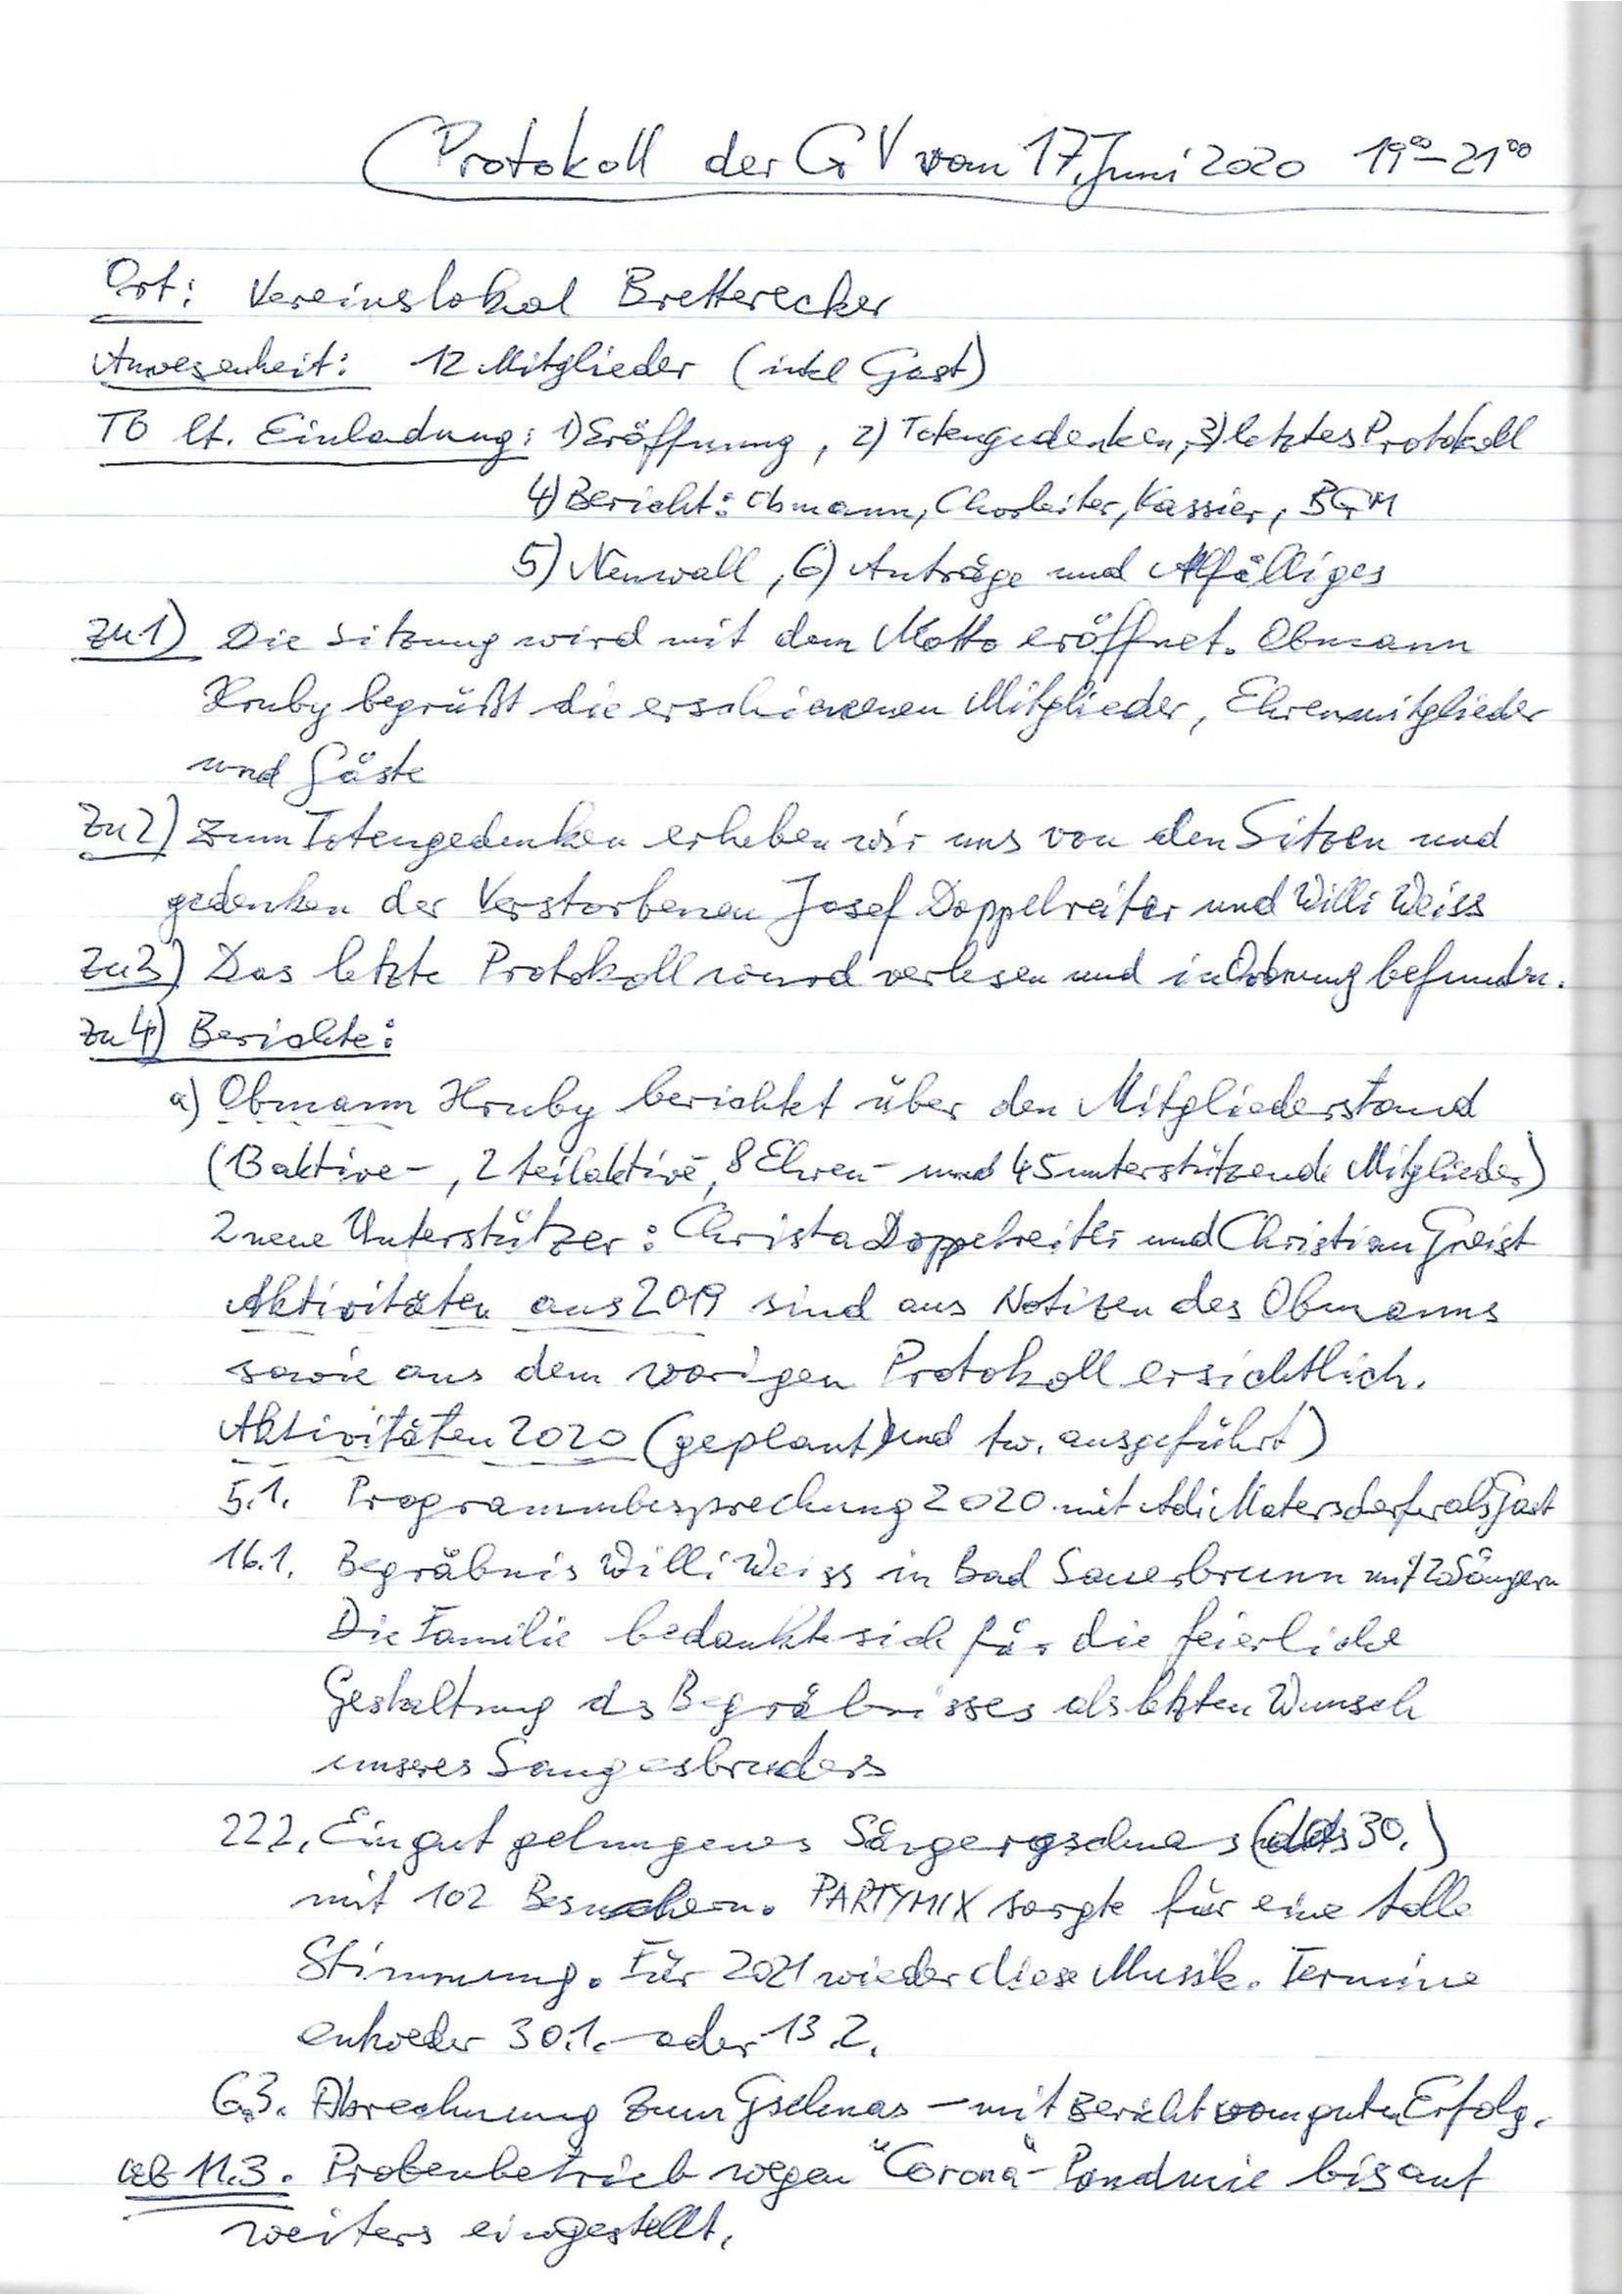 Protokoll der GV vom 17. Juni 2020 19⁰⁰-21⁰⁰
Ort: Vereinslokal Bretterecker
Anwesenheit: 12 Mitglieder (inkl Gast)
TO lt. Einladung: 1) Eröffnung, 2) Totengedenken, 3) letztes Protokoll
4) Bericht: Obmann, Chorleiter, Kassier, BGM
5) Neuwall, 6) Anträge und Allfälliges
zu 1) Die Sitzung wird mit dem Motto eröffnet. Obmann
Hruby begrüßt die erschienenen Mitglieder, Ehrenmitglieder
und Gäste
Zu 2) Zum Totengedenken erheben wir uns von den Sitzen und
gedenken der Verstorbenen Josef Doppelreiter und Willi Weiss
Zu 3) Das letzte Protokoll wurd verlesen und in Ordnung befunden.
Zu 4) Berichte:
a) Obmann Hruby berichtet über den Mitgliederstand
(13 aktive-, 2 teilaktive, 8 Ehren- und 45 unterstützende Mitglieder)
2 neue Unterstützer: Christa Doppelreiter und Christian Greist
Aktivitäten aus 2019 sind aus Notizen des Obmanns
sowie aus dem vorigen Protokoll ersichtlich.
Aktivitäten 2020 (geplant) und tw. ausgeführt)
5.1. Programmbesprechung 2020 mit Adi Matersdorfer als Gast
16.1. Begräbnis Willi Weiss in Bad Sauerbrunn mit Sängern
Die Familie bedankte sich für die feierliche
Gestaltung ds Begräbnisses als letzten Wunsch
unseres Sangesbruders
22.2. Ein gut gelungenes Sängergschnas (das 30.)
mit 102 Besuchern. PARTYMIX sorgte für eine tolle
Stimmung. Für 2021 wieder diese Musik. Termine
entweder 30.1. oder 13.2.
6.3. Abrechnung zum Gschnas – mit Bericht vom guten Erfolg.
ab 11.3. Probenbetrieb wegen "Corona"-Pandmie bis auf
weiters eingestellt.